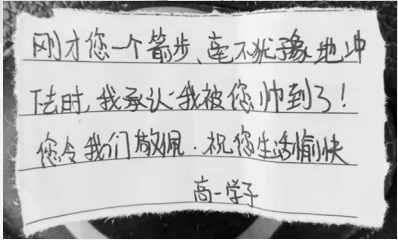 刚才您一个箭步、毫不犹豫地冲
下去时，我承认我被您帅到了！
您令我们敬佩．祝您生活愉快
高一学子